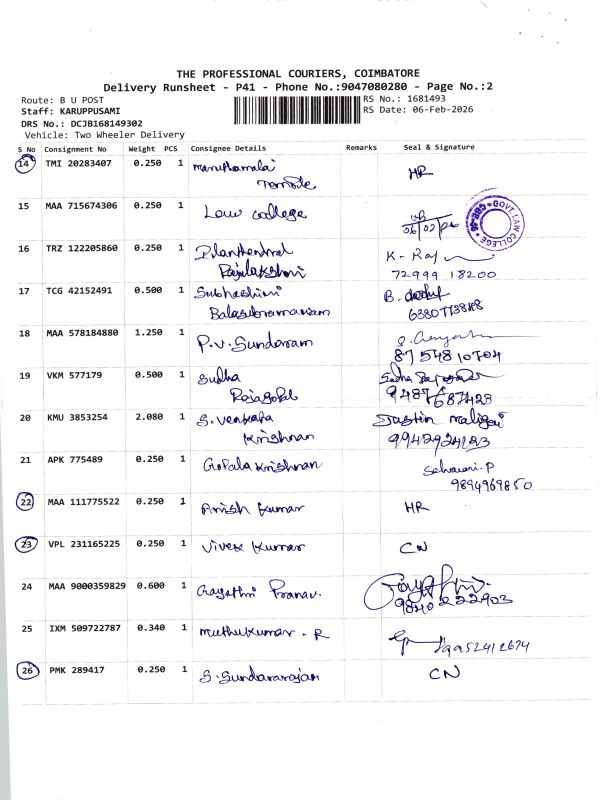 THE PROFESSIONAL COURIERS, COIMBATORE
Delivery Runsheet - P41 - Phone No.:9047080280 - Page No.:2
Route: B U POST
RS No.: 1681493
Staff: KARUPPUSAMI
RS Date: 06-Feb-2026
DRS No.: DCJB168149302
Vehicle: Two Wheeler Delivery
S No Consignment No Weight PCS Consignee Details Remarks Seal & Signature
14 TMI 20283407 0.250 1 Maruthamalai HR
Temple
15 MAA 715674306 0.250 1 Law college 06/02/26
GOVT. LAW COLLEGE
16 TRZ 122205860 0.250 1 K. Raj
Rajalakshmi 72999 18200
17 TCG 42152491 0.500 1 Subhashini B.
Balasubramaniam
18 MAA 578184880 1.250 1 P.V. Sundaram
87548 10704
19 VKM 577179 0.500 1 Sudha
Rajagopal 9487687428
20 KMU 3853254 2.080 1 S. Venkata
Krishnan
21 APK 775489 0.250 1 Gopala Krishnan
9894969850
22 MAA 111775522 0.250 1 Anish Kumar HR
23 VPL 231165225 0.250 1 Vivek Kumar CN
24 MAA 9000359829 0.600 1 Gayathri Pranav.
9840222903
25 IXM 509722787 0.340 1 Muthukumar - R
26 PMK 289417 0.250 1 S. Sundararajan CN